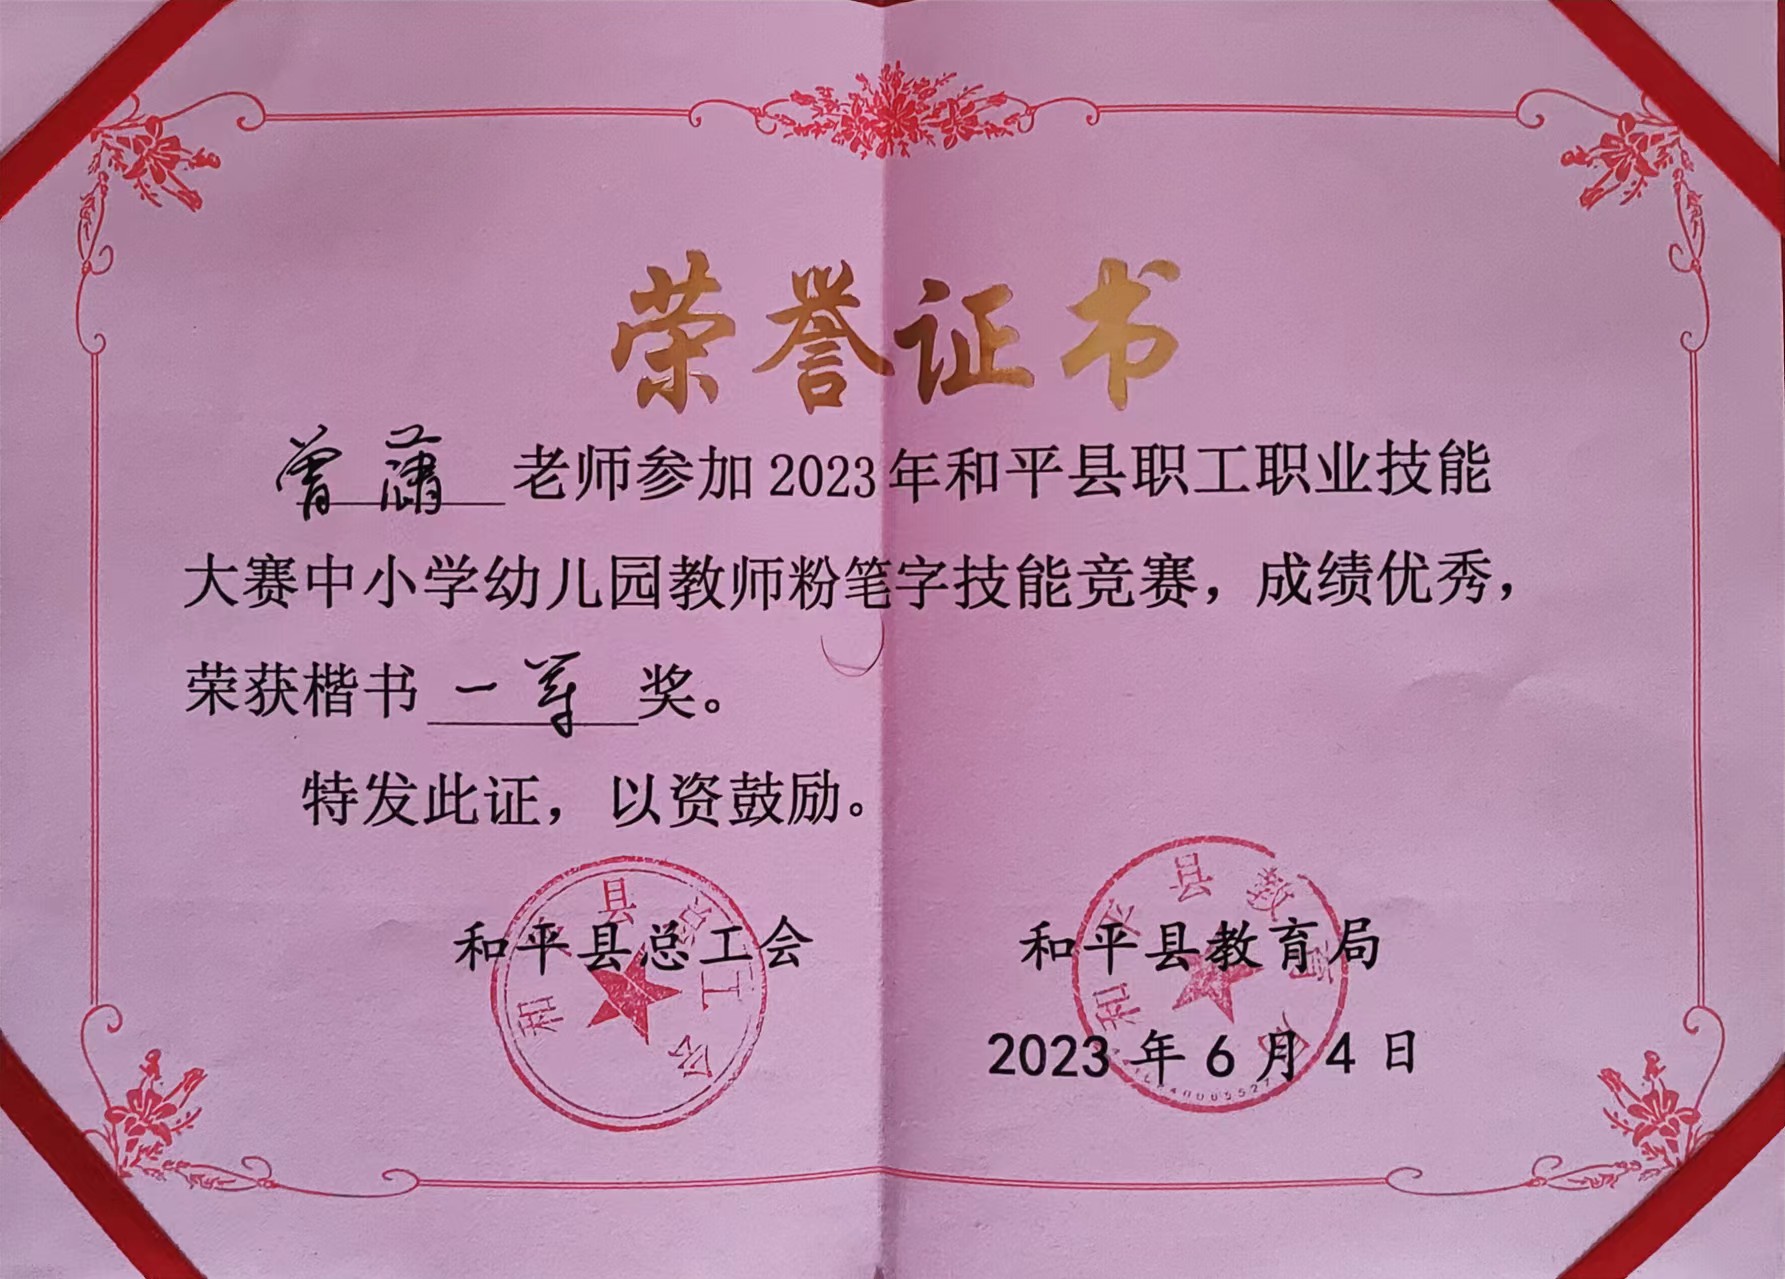 荣誉证书
曾潇老师参加2023年和平县职工职业技能
大赛中小学幼儿园教师粉笔字技能竞赛，成绩优秀，
荣获楷书一等奖。
特发此证，以资鼓励。
和平县总工会 和平县教育局
2023年6月4日
和平县总工会
和平县教育局